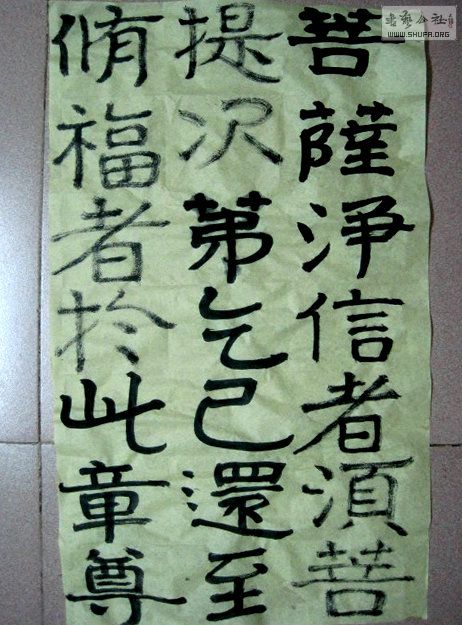 菩薩淨信者須菩
提次第乞已還至
脩福者於此章尊
書藝公社
WWW.SHUFA.ORG